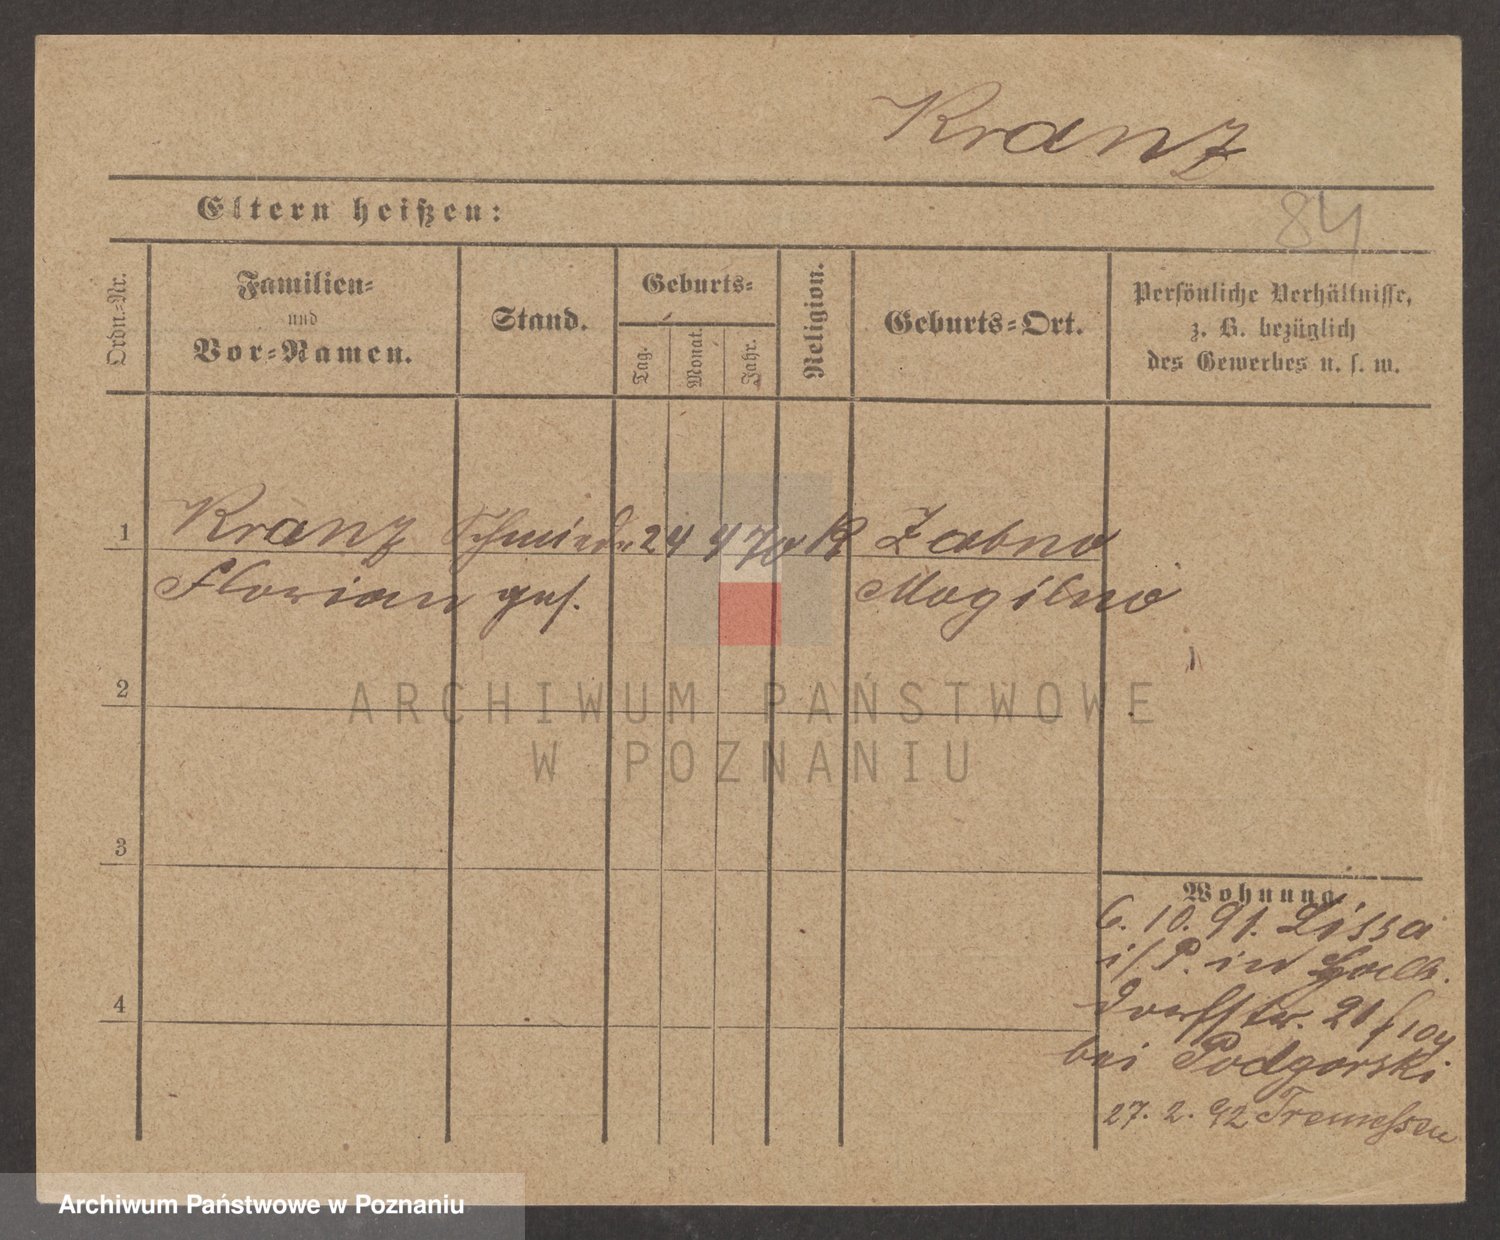 Kranz
Eltern heißen:
84
Ordn.-Nr.
Familien-
und
Vor-Namen.
Stand.
Geburts-
Tag.
Monat.
Jahr.
Religion.
Geburts-Ort.
Persönliche Verhältnisse,
z. B. bezüglich
des Gewerbes u. s. w.
1 Kranz Schmiede 24 4 70 K Zabno
Florian ges. Mogilno
2
ARCHIWUM PAŃSTWOWE
W POZNANIU
3
Wohnung.
6. 10. 91. Lissa
i/P. in
dorffstr. 21
bei Podgorski
4
27. 2. 92 Tremessen
Archiwum Państwowe w Poznaniu